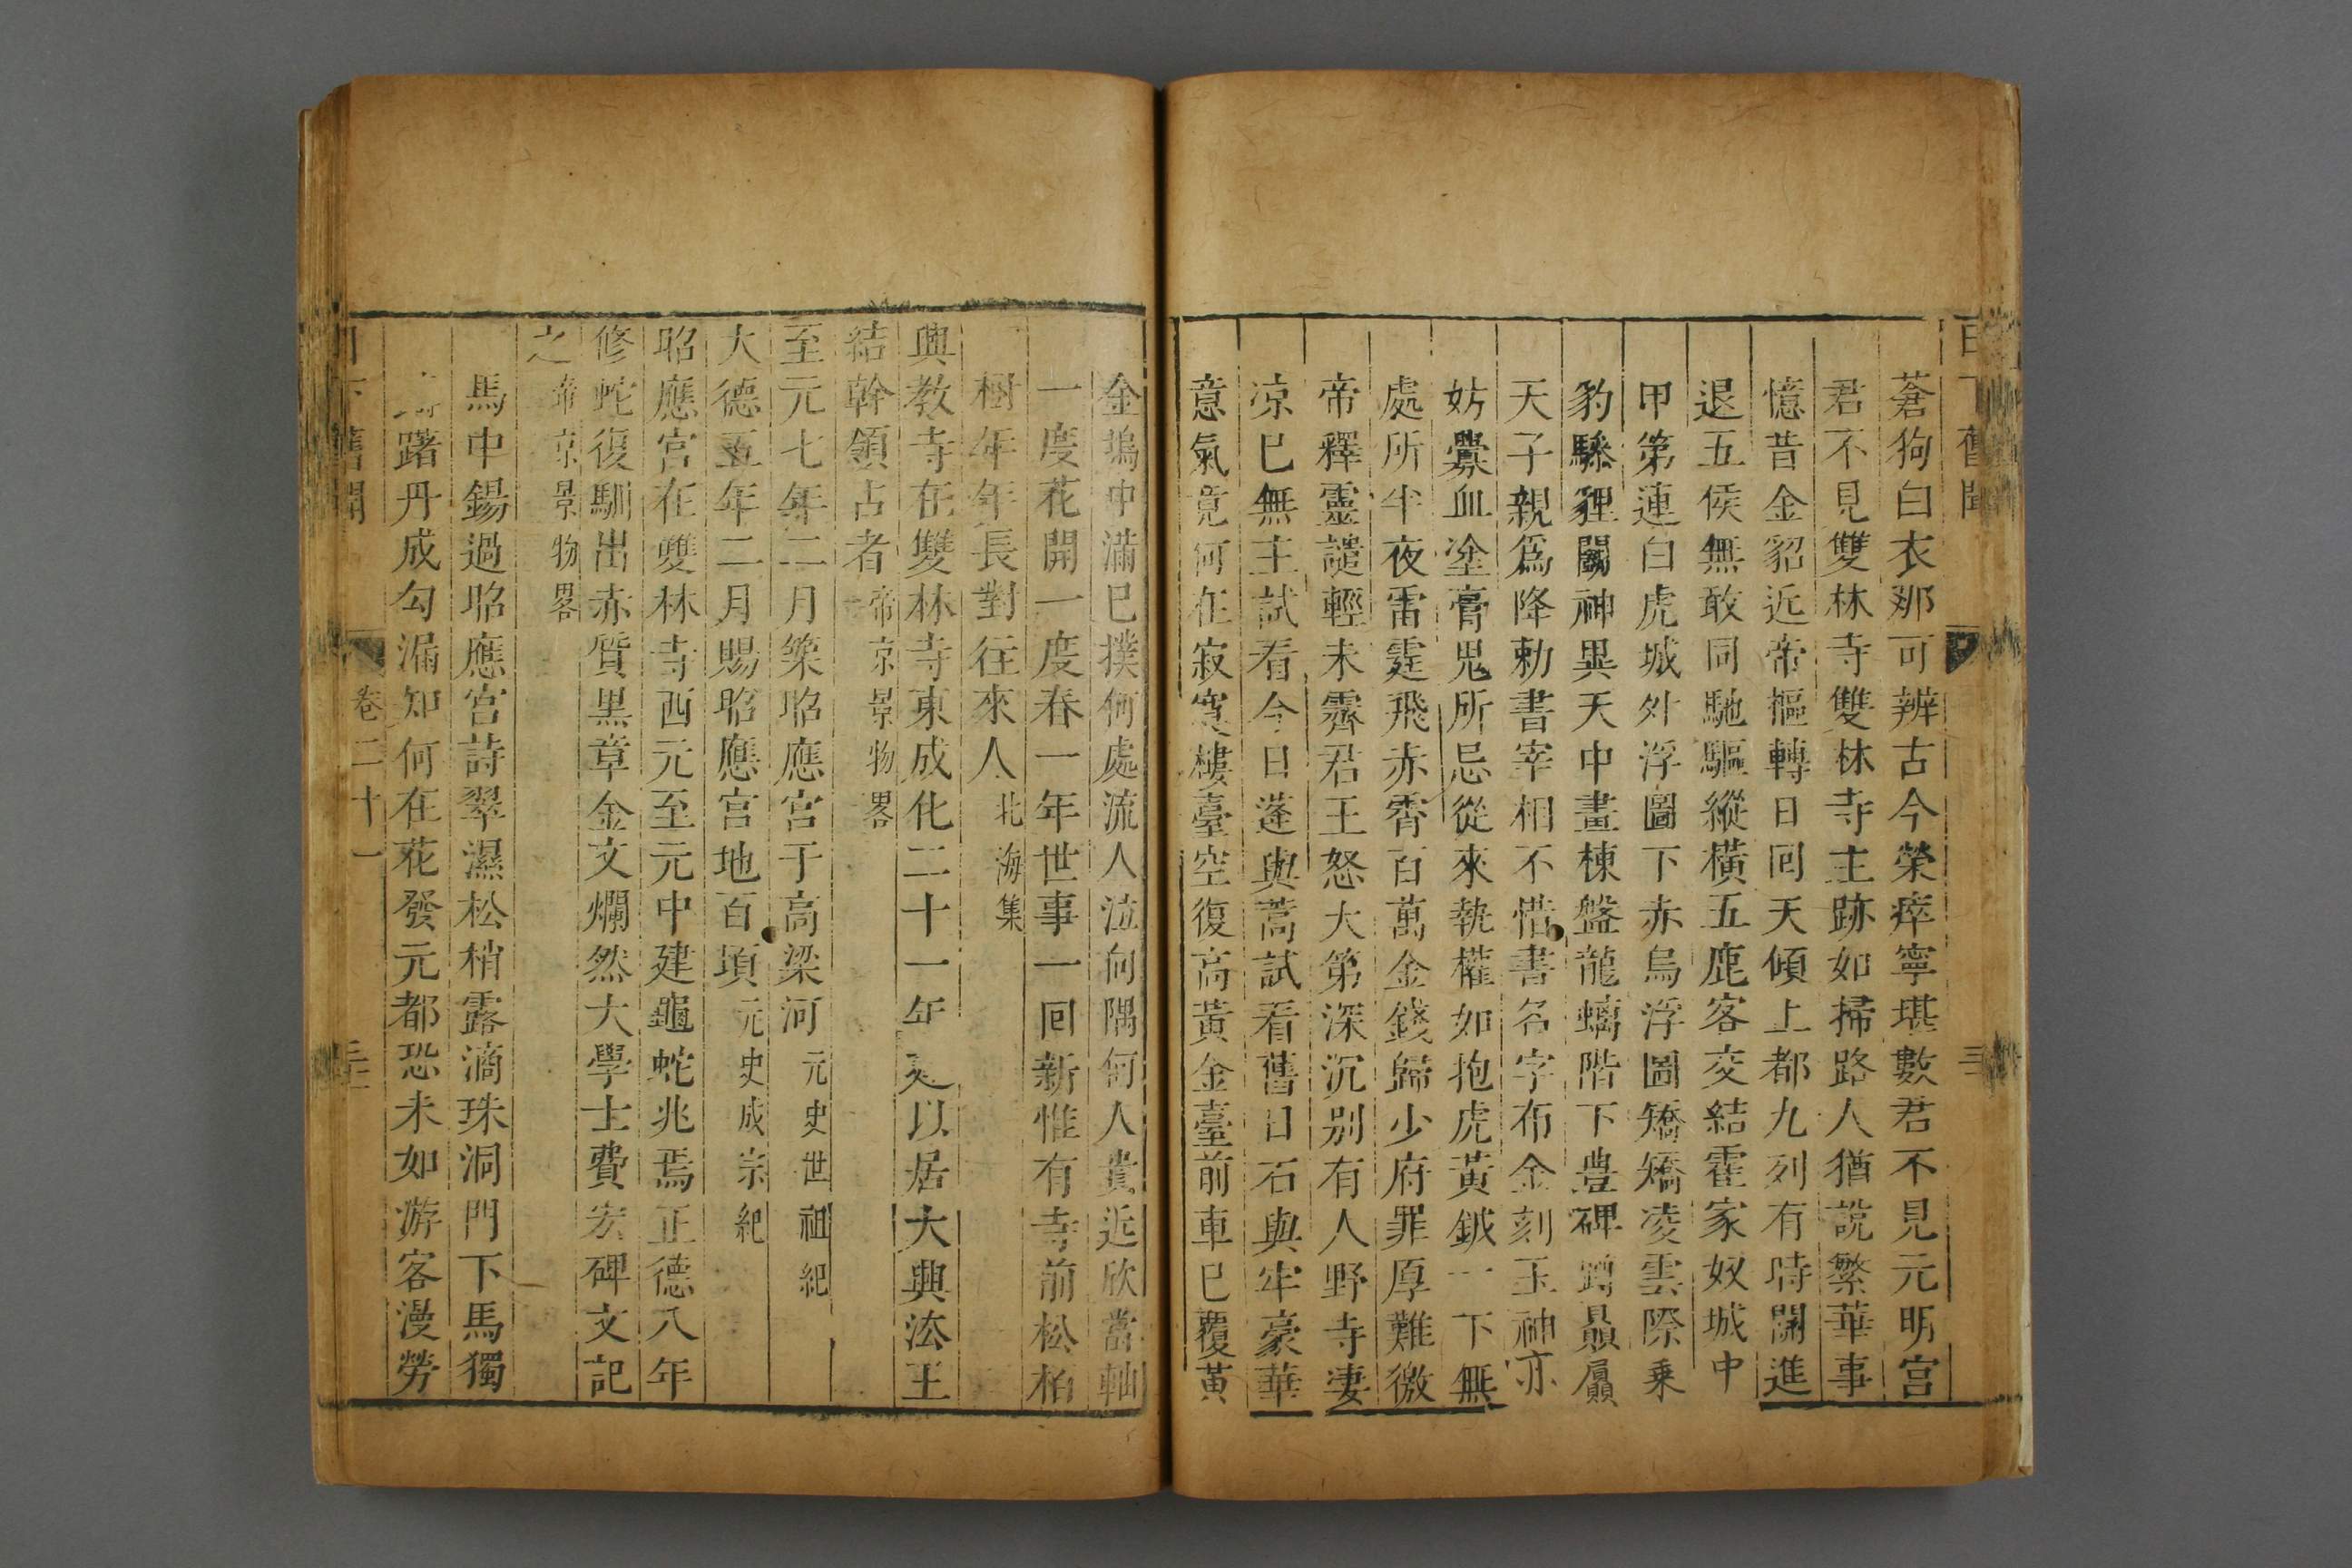 下舊聞
三
蒼狗白衣那可辨古今榮瘁寧堪數君不見元明宮
君不見雙林寺雙林寺主跡如掃路人猶說繁華事
憶昔金貂近帝樞轉日回天傾上都九列有時開進
退五侯無敢同馳驅縱橫五鹿客交結霍家奴城中
甲第連白虎城外浮圖下赤烏浮圖矯矯凌雲際乗
豹騄貍闞神異天中畫棟盤龍螭階下豊碑蹲贔屭
天子親爲降勅書宰相不惜書名字布金刻玉神亦
妨釁血塗膏鬼所忌從來執權如抱虎黃鉞一下無
處所半夜雷霆飛赤霄百萬金錢歸少府罪厚難徼
帝釋靈譴輕未霽君王怒大第深沉别有人野寺凄
凉巳無主試看今日蓬與蒿試看舊日石與牢豪華
意氣竟何在寂寞樓臺空復高黃金臺前車巳覆黃
金塢中滿巳撲何處流人泣向隅何人貴近欣當軸
一度花開一度春一年世事一回新惟有寺前松栢
樹年年長對往來人北海集
興教寺在雙林寺東成化二十一年建以居大興法王
結幹領占者帝京景物畧
至元七年二月築昭應宮于高梁河元史世祖紀
大德五年二月賜昭應宮地百頃元史成宗紀
昭應宮在雙林寺西元至元中建龜蛇兆焉正德八年
修蛇復馴出赤質黒章金文爛然大學士費宏碑文記
之帝京景物畧
馬中錫過昭應宮詩翠濕松梢露滴珠洞門下馬獨
躇丹成勾漏知何在花發元都恐未如游客漫勞
下舊聞
卷二十一
三